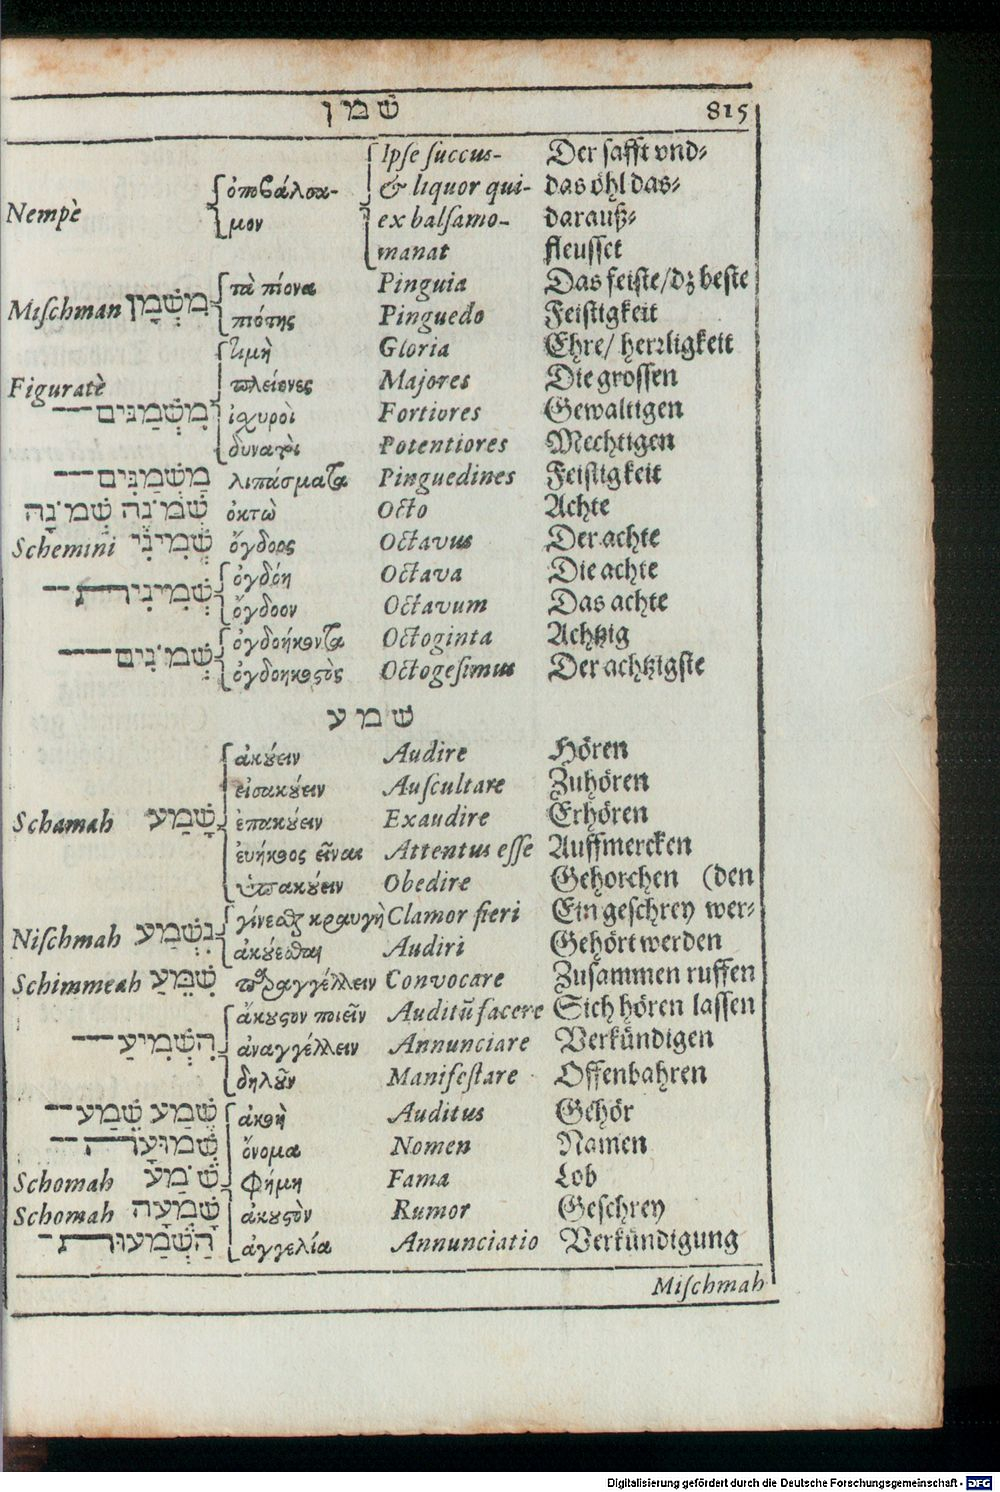 שמן 815
Ipſe ſuccus- Der safft vnd⸗
Nempè ὀποβάλσα- & liquor qui- das öhl das⸗
μον ex balſamo- darauß⸗
manat fleusset
Miſchman מִשְׁמָן τὰ πίονα Pinguia Das feiste/dz beste
πιότης Pinguedo Feistigkeit
τιμὴ Gloria Ehre/ herrligkeit
Figuratè πλείονες Majores Die grossen
מִשְׁמַנִּים — ἰσχυροὶ Fortiores Gewaltigen
δυνατοὶ Potentiores Mechtigen
מַשְׁמַנִּים — λιπάσματα Pinguedines Feistigkeit
שְׁמֹנֶה שְׁמֹנָה ὀκτὼ Octo Achte
Schemini שְׁמִינִי ὄγδοος Octavus Der achte
שְׁמִינִית — ὀγδόη Octava Die achte
ὄγδοον Octavum Das achte
שְׁמֹנִים — ὀγδοήκοντα Octoginta Achtzig
ὀγδοηκοστὸς Octogeſimus Der achtzigste
שמע
ἀκούειν Audire Hören
εἰσακούειν Auſcultare Zuhören
Schamah שָׁמַע ἐπακούειν Exaudire Erhören
ἐυήκοος εἶναι Attentus eſſe Auffmercken
ὑπακούειν Obedire Gehorchen (den
Niſchmah נִשְׁמַע γίνεσθαι κραυγὴ Clamor fieri Ein geschrey wer⸗
ἀκούεσθαι Audiri Gehört werden
Schimmeah שִׁמֵּעַ παραγγέλλειν Convocare Zusammen ruffen
ἄκουστον ποιεῖν Auditũ facere Sich hören lassen
הִשְׁמִיעַ — ἀναγγέλλειν Annunciare Verkündigen
δηλοῦν Manifeſtare Offenbahren
שֶׁמַע שֵׁמַע — ἀκοὴ Auditus Gehör
שְׁמוּעָה — ὄνομα Nomen Namen
Schomah שֹׁמַע φήμη Fama Lob
Schomah שָׁמְעָה ἀκουστὸν Rumor Geschrey
הַשְׁמָעוּת - ἀγγελία Annunciatio Verkündigung
Miſchmah
Digitalisierung gefördert durch die Deutsche Forschungsgemeinschaft - DFG